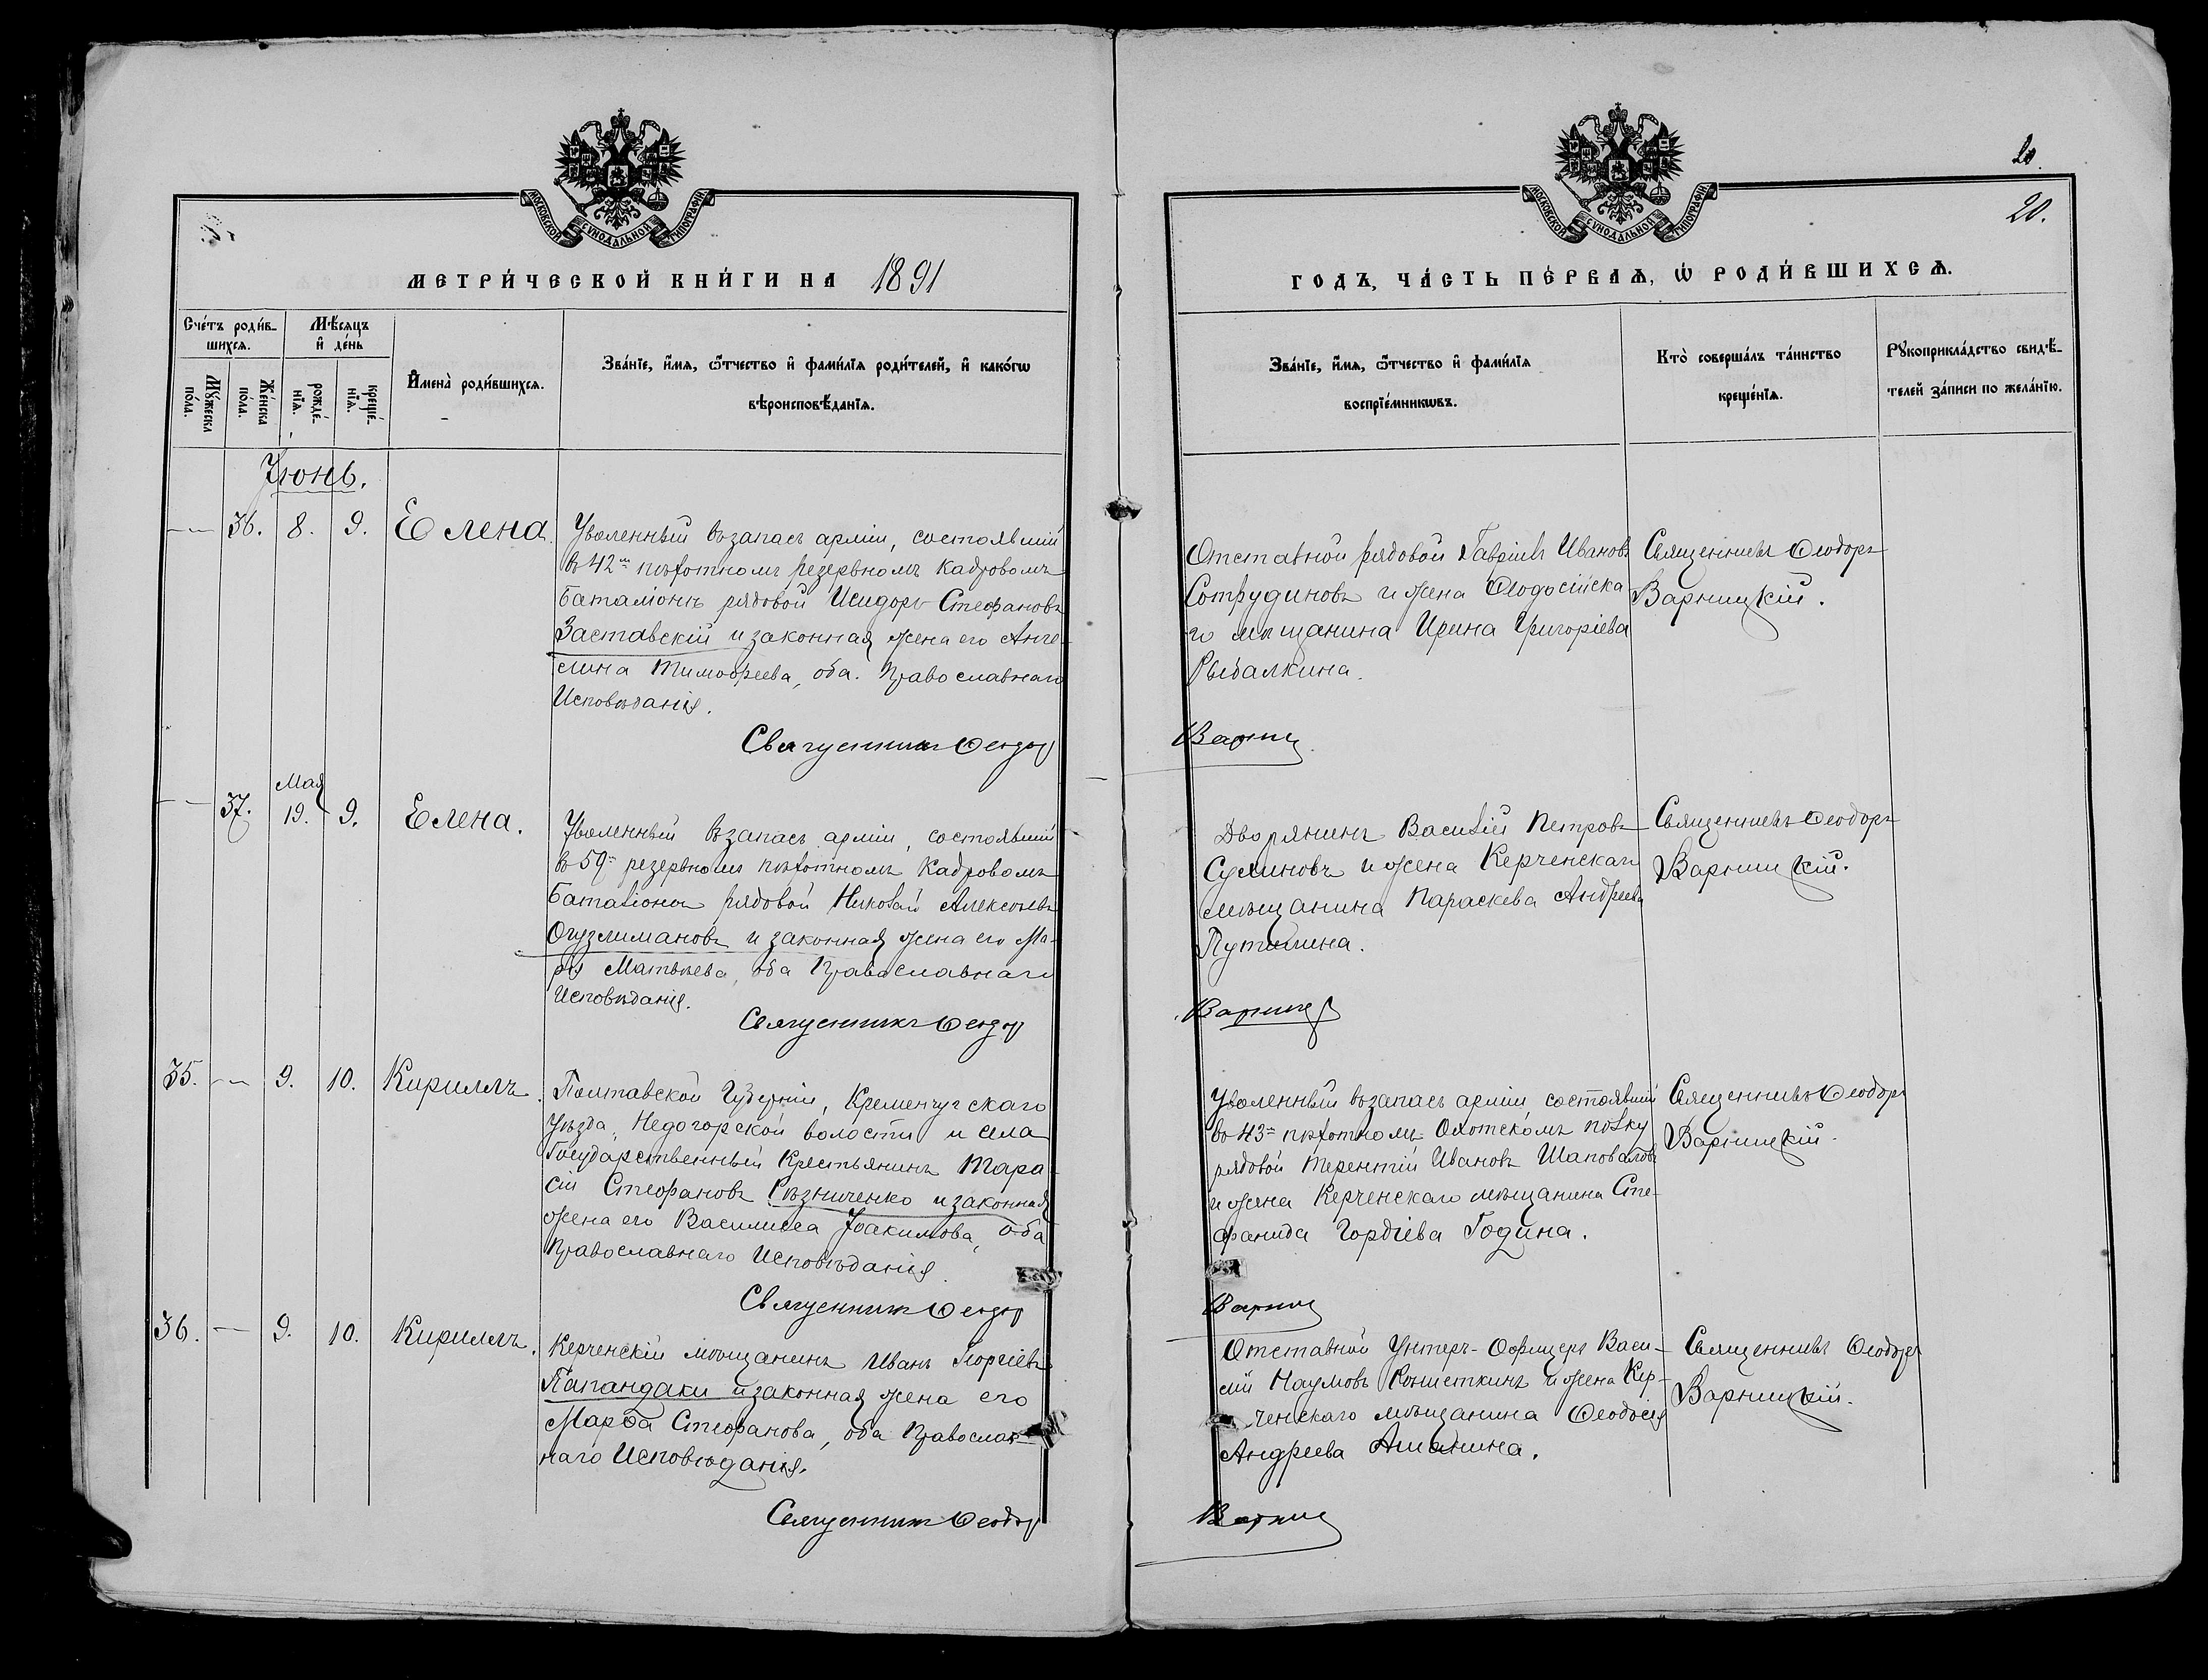 МОСКОВСКОЙ СѴНОДАЛЬНОЙ ТИПОГРАФІИ
МЕТРИ́ЧЕСКОЙ КНИ́ГИ НА 1891
Сче́тъ роди́в-
шихсѧ.
Мѣ́сѧцъ
и҆ де́нь
Мꙋ́жеска
по́ла.
Же́нска
по́ла.
рожде́-
нїѧ.
креще́-
нїѧ.
И҆мена̀ роди́вшихсѧ.
Зва́нїе, и҆́мѧ, ѻ҆́тчество и҆ фами́лїѧ роди́телей, и҆ како́гѡ
вѣроисповѣ́данїѧ.
Іюнь.
— 36. 8. 9. Елена.
Уволенный въ запасъ арміи, состоявшій
въ 42м пѣхотномъ резервномъ кадровомъ
баталіонѣ рядовой Исидоръ Стефановъ
Заставскій и законная жена его Анге-
лина Тимофеева, оба Православнаго
Исповѣданія.
Священникъ Ѳеодор
— 37. Мая 19. 9. Елена.
Уволенный въ запасъ арміи, состоявшій
въ 59м резервномъ пѣхотномъ Кадровомъ
баталіонѣ рядовой Николай Алексѣевъ
Огузлимановъ и законная жена его Ма-
рія Матвѣева, оба Православнаго
Исповѣданія.
Священникъ Ѳеодор
35. — 9. 10. Кириллъ.
Полтавской Губерніи, Кременчугскаго
Уѣзда, Недогорской волости и села
Государственный Крестьянинъ Тара-
сій Стефановъ Рѣзниченко и законная
жена его Василисса Іоакимова, оба
Православнаго Исповѣданія.
Священникъ Ѳеодор
36. — 9. 10. Кириллъ.
Керченскій мѣщанинъ Иванъ Георгіевъ
Папандаки и законная жена его
Марѳа Стефанова, оба Православ-
наго Исповѣданія.
Священникъ Ѳеодор
20.
МОСКОВСКОЙ СѴНОДАЛЬНОЙ ТИПОГРАФІИ
20.
ГОДЪ, ЧА́СТЬ ПЕ́РВАѦ, Ѡ҆ РОДИ́ВШИХСѦ.
Зва́нїе, и҆́мѧ, ѻ҆́тчество и҆ фами́лїѧ
воспрїе́мникѡвъ.
Кто̀ соверша́лъ та́инство
креще́нїѧ.
Рꙋкоприкла́дство свидѣ́-
телей за́писи по жела́нїю.
Отставной рядовой Гавріилъ Ивановъ
Сотрудиновъ и жена Ѳеодосійска-
го мѣщанина Ирина Григоріева
Рыбалкина.
Священникъ Ѳеодоръ
Варницкій.
Варниц
Дворянинъ Василій Петровъ
Сулиновъ и жена Керченскаго
мѣщанина Параскева Андреева
Путилина.
Священникъ Ѳеодоръ
Варницкій.
Варниц
Уволенный въ запасъ арміи состоявшій
въ 43м пѣхотномъ Охотскомъ полку
рядовой Терентій Ивановъ Шаповаловъ
и жена Керченскаго мѣщанина Сте-
фанида Гордіева Година.
Священникъ Ѳеодоръ
Варницкій.
Варниц
Отставной Унтеръ-Офицеръ Васи-
лій Наумовъ и жена Кер-
ченскаго мѣщанина Ѳеодосія
Андреева Ананина.
Священникъ Ѳеодоръ
Варницкій.
Варниц